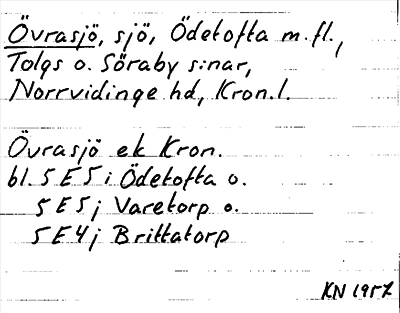 Övrasjö, sjö, Ödetofta m.fl.,
Tolgs o. Söraby s:nar,
Norrvidinge hd, Kron.l.
Övrasjö ek Kron.
bl. 5 E 5 i Ödetofta o.
5 E 5 j Varetorp o.
5 E 4 j Brittatorp
KN 1957